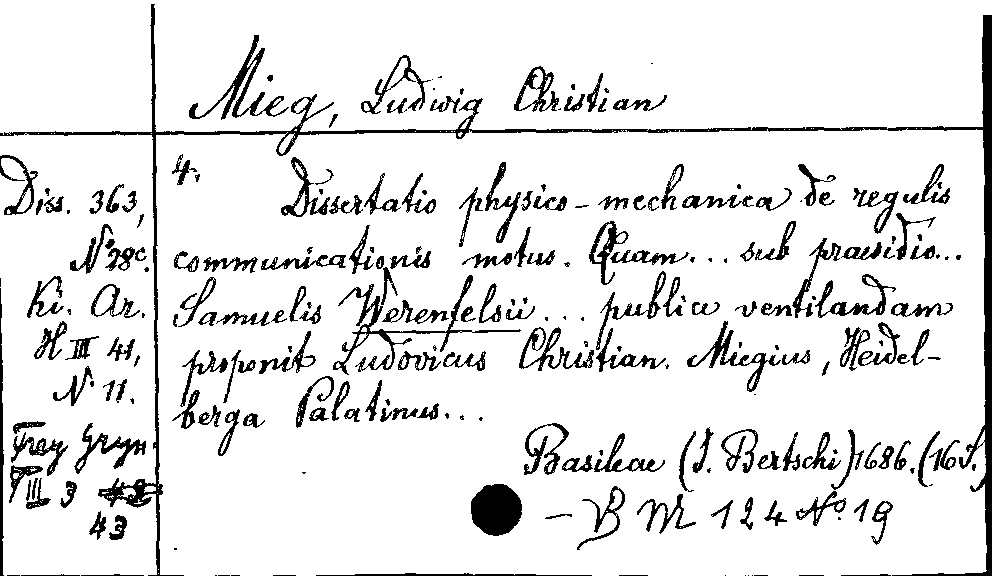 Mieg, Ludwig Christian
Diss. 363,
N° 28c.
Ki. Ar.
H III 41,
N. 11.
Frey Gryn.
F III 3 42
43
4.
Dissertatio physico-mechanica de regulis
communicationis motus. Quam... sub praesidio...
Samuelis Werenfelsii... publice ventilandam
proponit Ludovicus Christian. Miegius, Heidel-
berga Palatinus...
Basileae (J. Bertschi) 1686. (16 S.)
- B M 124 No 19